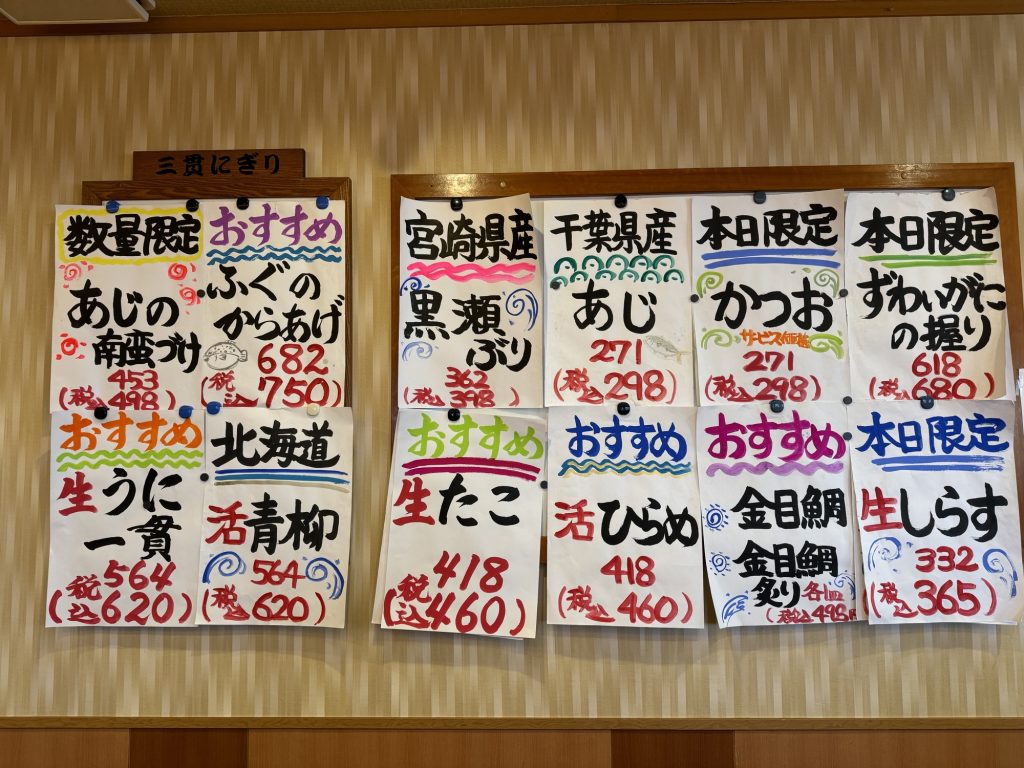 三貫にぎり
数量限定
あじの
南蛮づけ
453
(税込498)
おすすめ
ふぐの
からあげ
682
(税込750)
おすすめ
生うに
一貫
564
(税込620)
北海道
活青柳
564
(税込620)
宮崎県産
黒瀬
ぶり
362
(税込398)
千葉県産
あじ
271
(税込298)
本日限定
かつお
サービス価格
271
(税込298)
本日限定
ずわいがに
の握り
618
(税込680)
おすすめ
生たこ
418
(税込460)
おすすめ
活ひらめ
418
(税込460)
おすすめ
金目鯛
金目鯛
炙り各皿
(税込498円
本日限定
生しらす
332
(税込365)